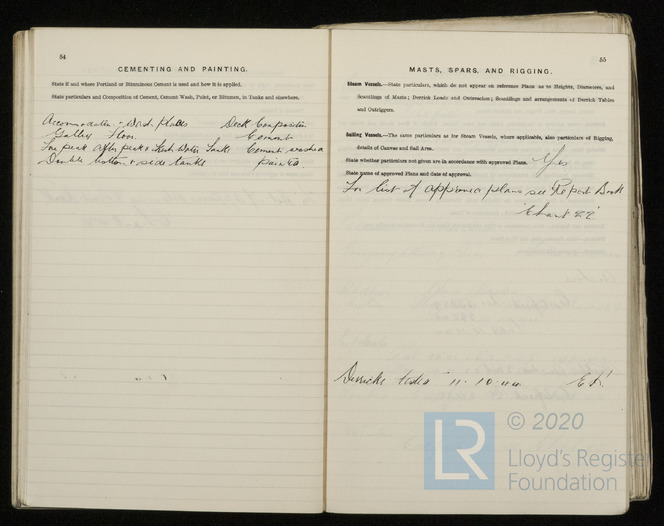 54
CEMENTING AND PAINTING.
State if and where Portland or Bituminous Cement is used and how it is applied.
State particulars and Composition of Cement, Cement Wash, Paint, or Bitumen, in Tanks and elsewhere.
Accommodation Deck Composition
Galley Floor. Cement
Fore peak after peak & Fresh Water Tanks Cement washed
Double bottom & side tanks painted.
55
MASTS, SPARS, AND RIGGING.
Steam Vessels.—State particulars, which do not appear on reference Plans as to Heights, Diameters, and
Scantlings of Masts; Derrick Loads and Outreaches; Scantlings and arrangements of Derrick Tables
and Outriggers.
Sailing Vessels.—The same particulars as for Steam Vessels, where applicable, also particulars of Rigging,
details of Canvas and Sail Area.
State whether particulars not given are in accordance with approved Plans. Yes
State names of approved Plans and date of approval.
For list of approved plans see Report Book
Derricks tested 11. 10.
© 2020
LR
Lloyd's Register
Foundation